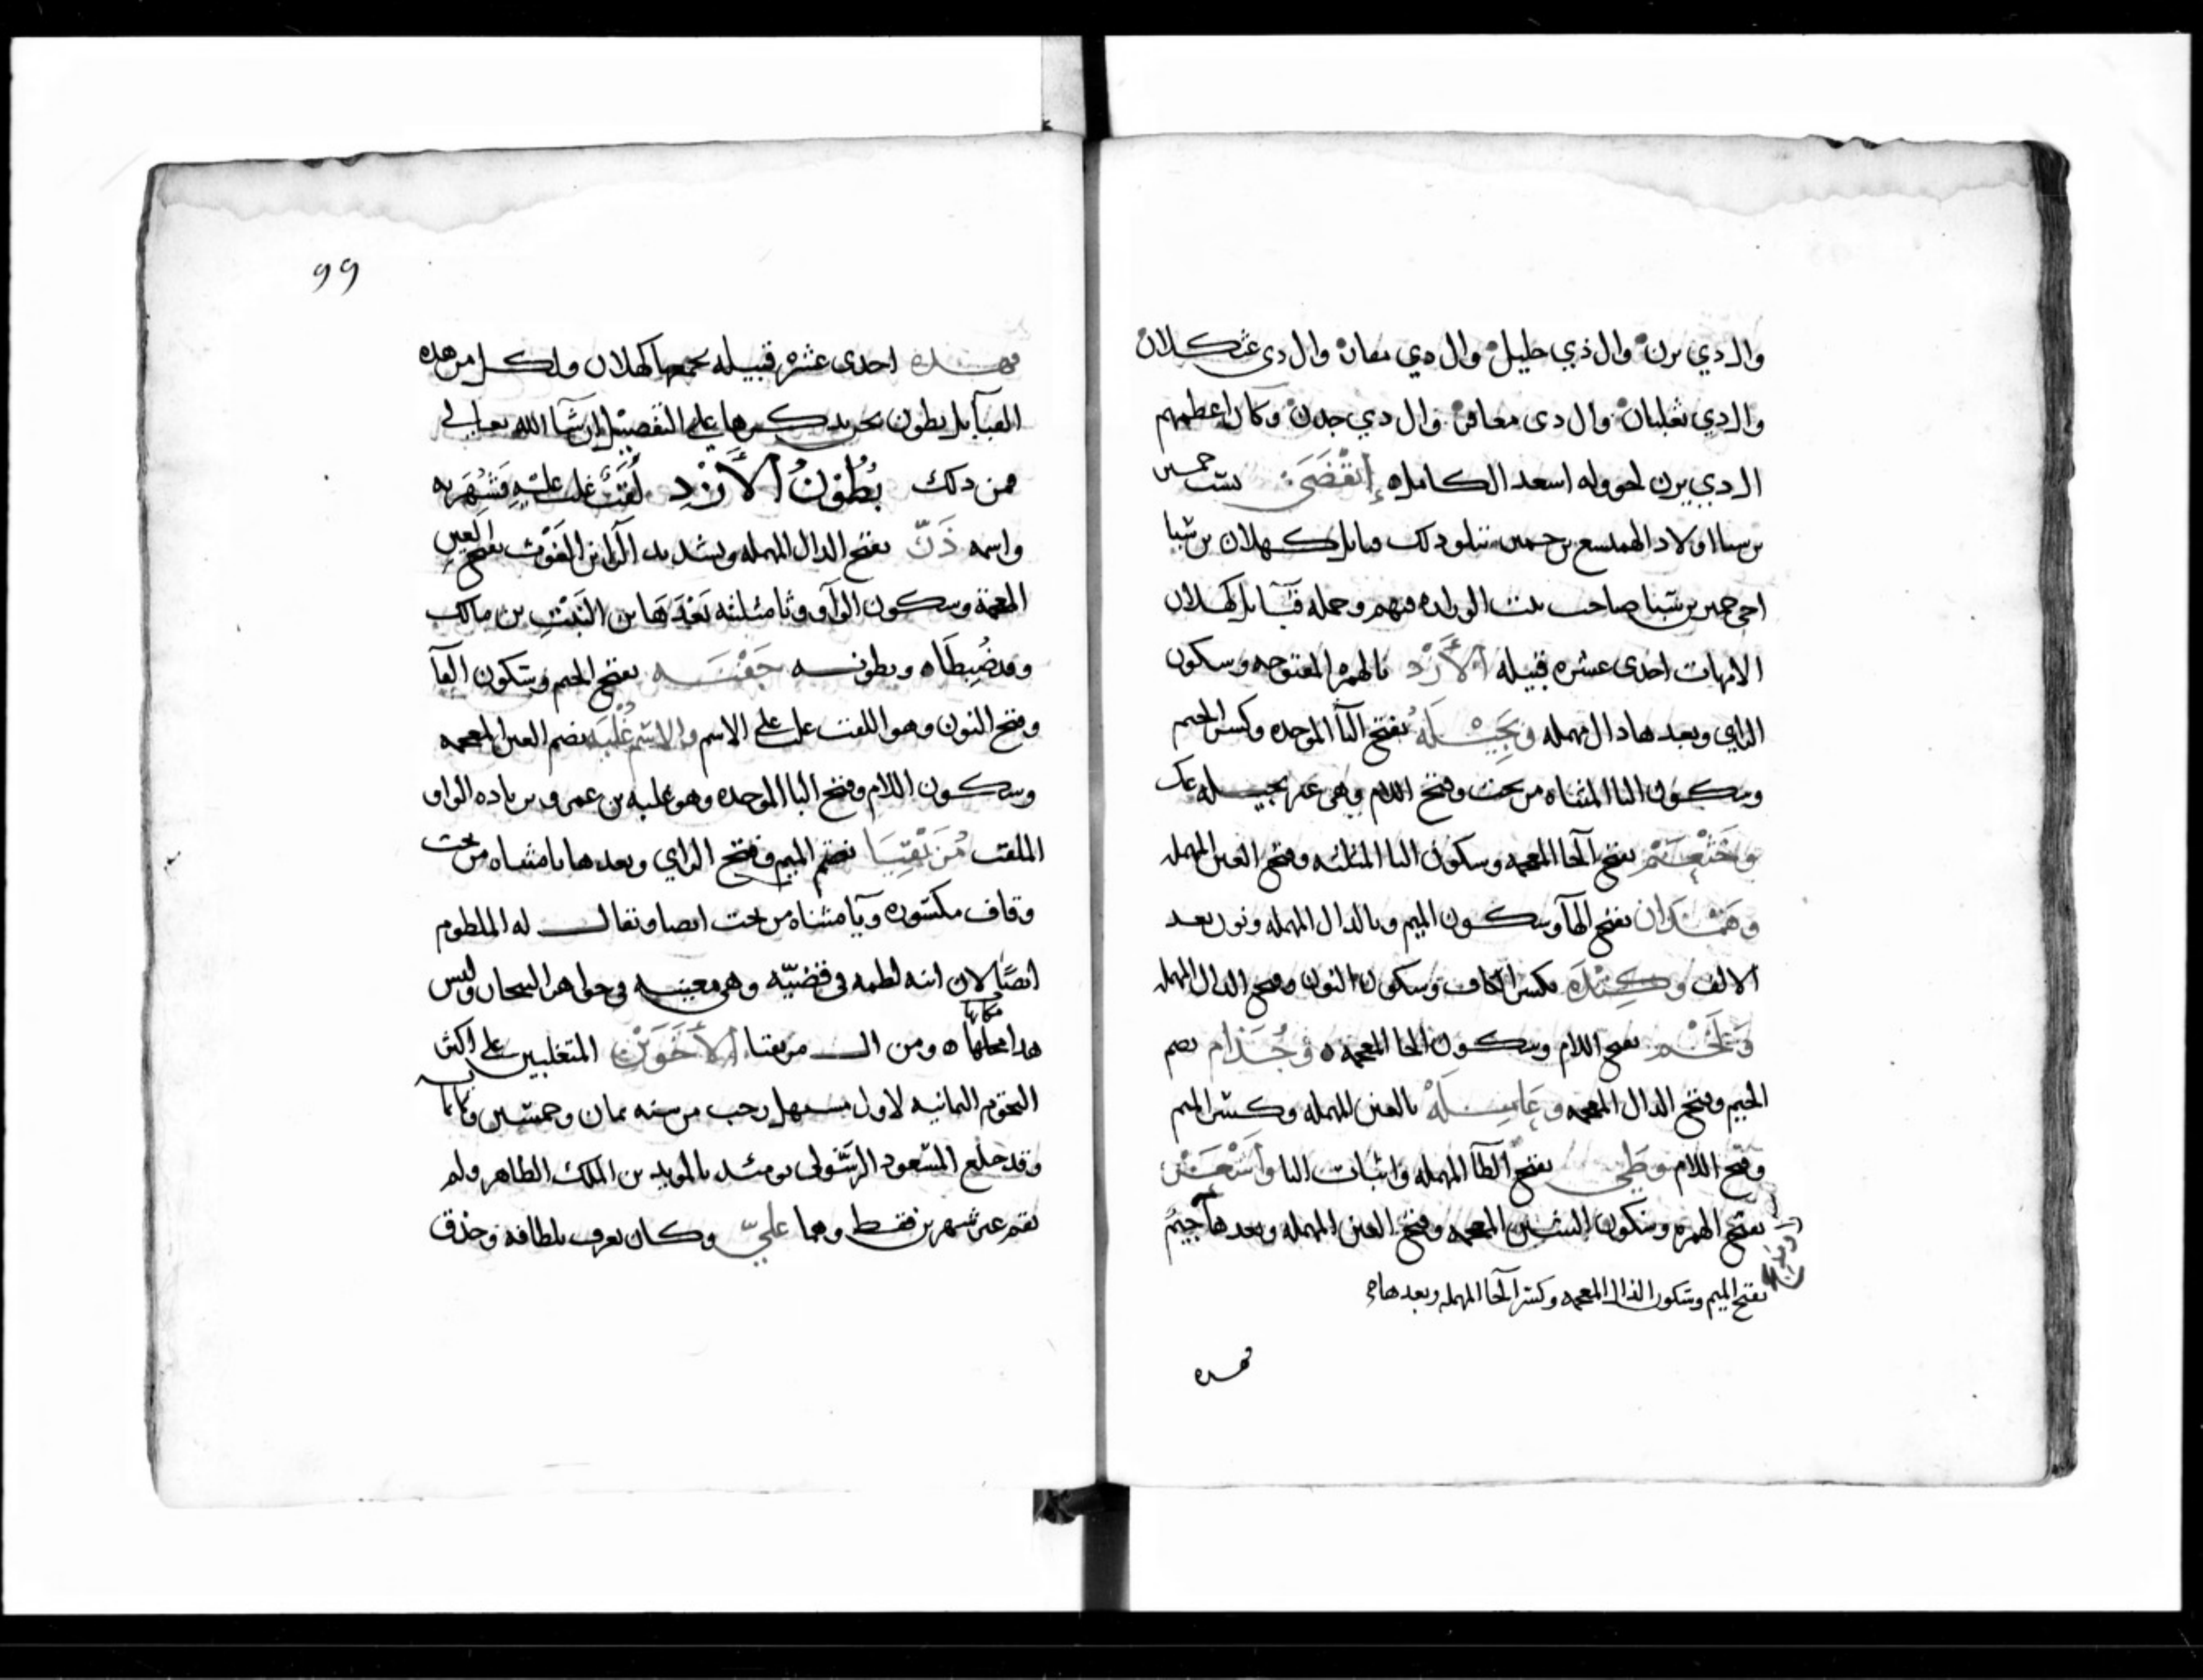 وال دي يزن وال ذي خليل وال دي مغان وال دي عثكلان
وال دي ثعلبان وال دى معافر وال دي جدن وكان اعظمهم
ال دي يزن لحووله اسعد الكامل ه إنقضى نسب حمير
بن سبا اولاد الهميسع بن حمير تتلو ذلك قبايل كهلان بن سبا
اخى حمير بن سبا صاحب بيت الوزاره فيهم وجمله قبايل كهلان
الامهات احدى عشره قبيله الأزد بالهمزه المفتوحه وسكون
الزاي وبعدها دال مهمله وبجيله بفتح البآ الموحده وكسر الجيم
وسكون اليا المثناه من تحت وفتح اللام وهى غير بجيله عك
وخثعم بفتح الخا المعجمه وسكون الثا المثلثه وفتح العين المهمله
وهمدان بفتح الهآ وسكون الميم وبالدال المهمله ونون بعد
الالف وكنده بكسر الكاف وسكون النون وفتح الدال المهمله
ولخم بفتح اللام وسكون الخا المعجمه ه وجذام بضم
الجيم وفتح الدال المعجمه وعامله بالعين المهمله وكسر الميم
وفتح اللام وطي بفتح الطآ المهمله واثبات اليا واشعر
بفتح الهمزه وسكون الشين المعجمه وفتح العين المهمله وبعدها جيم
ومذحج
بفتح الميم وسكون الذال المعجمه وكسر الحا المهمله وبعدها
فهده
99
فهده احدى عشره قبيله يجمعها كهلان ولكل من هده
القبآيل بطون نحن نذكرها على التفصيل إن شآ الله تعالى
فمن ذلك بُطُوْنُ الأَزْدِ لقب غلب عليه فشهر به
واسمه دَرّ بفتح الدال المهمله وتشديد الرآ بن الغوث بفتح الغين
المعجمة وسكون الواو وثا مثلثه بعدها بن النبت بن مالك
وقد ضبطاه وبطونه جفنه بفتح الجيم وسكون الفآ
وفتح النون وهو اللقب غلب على الاسم والاسم غلبه بضم الغين المعجمه
وسكون اللام وفتح البا الموحده وهو غلبه بن عمرو بزياده الواو
الملقب مزيقيا بضم الميم وفتح الزاي وبعدها يا مثناه من تحت
وقاف مكسوره ويآ مثناه من تحت ايضا ويقال له الملطوم
ايضًا لان ابنه لطمه فى قضيّه وهى معينه فى جواهر التيجان وليس
هدا محلها مكانها ه ومن ال مزيقيا الأخوين المتغلبين على اكثر
التخوم اليمانيه لاول يستهل رجب من سنه ثمان وخمسين وثمانمايه
وقد خلع المسعود الرسولى يومئد بالمويد بن الملك الظاهر ولم
يقم غير شهرين فقط وهما عليّ وكان يعرف بلطافه وحذق